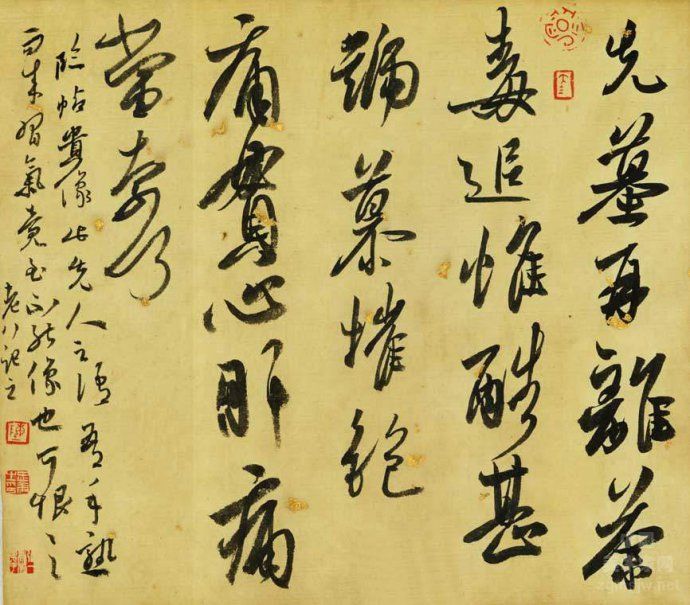 先墓再離荼
毒追惟酷甚
號慕摧絕
痛貫心肝痛
當奈何
臨帖貴像此先人之語吾手熟
而習氣竟至不能像也可恨
老八記之